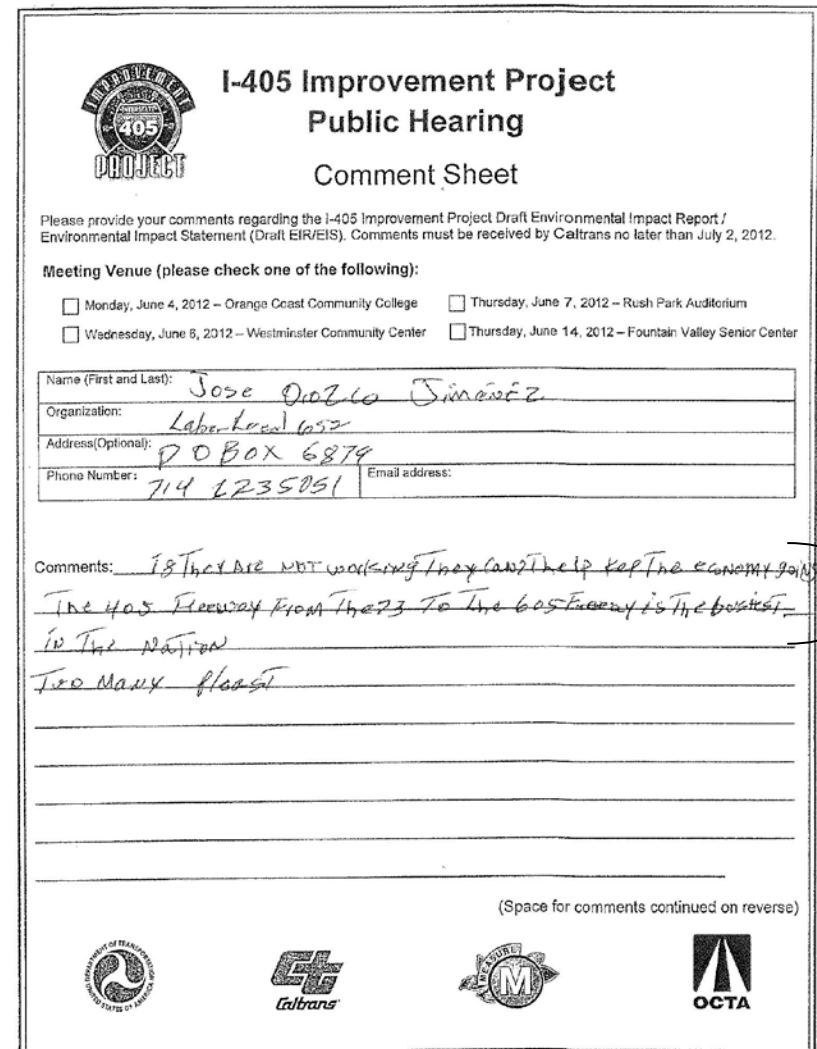 IMPROVEMENT
INTERSTATE
405
PROJECT
I-405 Improvement Project
Public Hearing
Comment Sheet
Please provide your comments regarding the I-405 Improvement Project Draft Environmental Impact Report /
Environmental Impact Statement (Draft EIR/EIS). Comments must be received by Caltrans no later than July 2, 2012.
Meeting Venue (please check one of the following):
Monday, June 4, 2012 – Orange Coast Community College
Thursday, June 7, 2012 – Rush Park Auditorium
Wednesday, June 6, 2012 – Westminster Community Center
Thursday, June 14, 2012 – Fountain Valley Senior Center
Name (First and Last): Jose Jimenez
Organization: Labor Local 652
Address(Optional): P O BOX 6879
Phone Number: 714 1235051
Email address:
Comments: If They Are NOT working They Can't help kep The economy going
The 405 Freeway From The 73 To The 605 Freeway is The busiest
in The Nation
Two Many
(Space for comments continued on reverse)
DEPARTMENT OF TRANSPORTATION
UNITED STATES OF AMERICA
Caltrans
MEASURE
M
OCTA